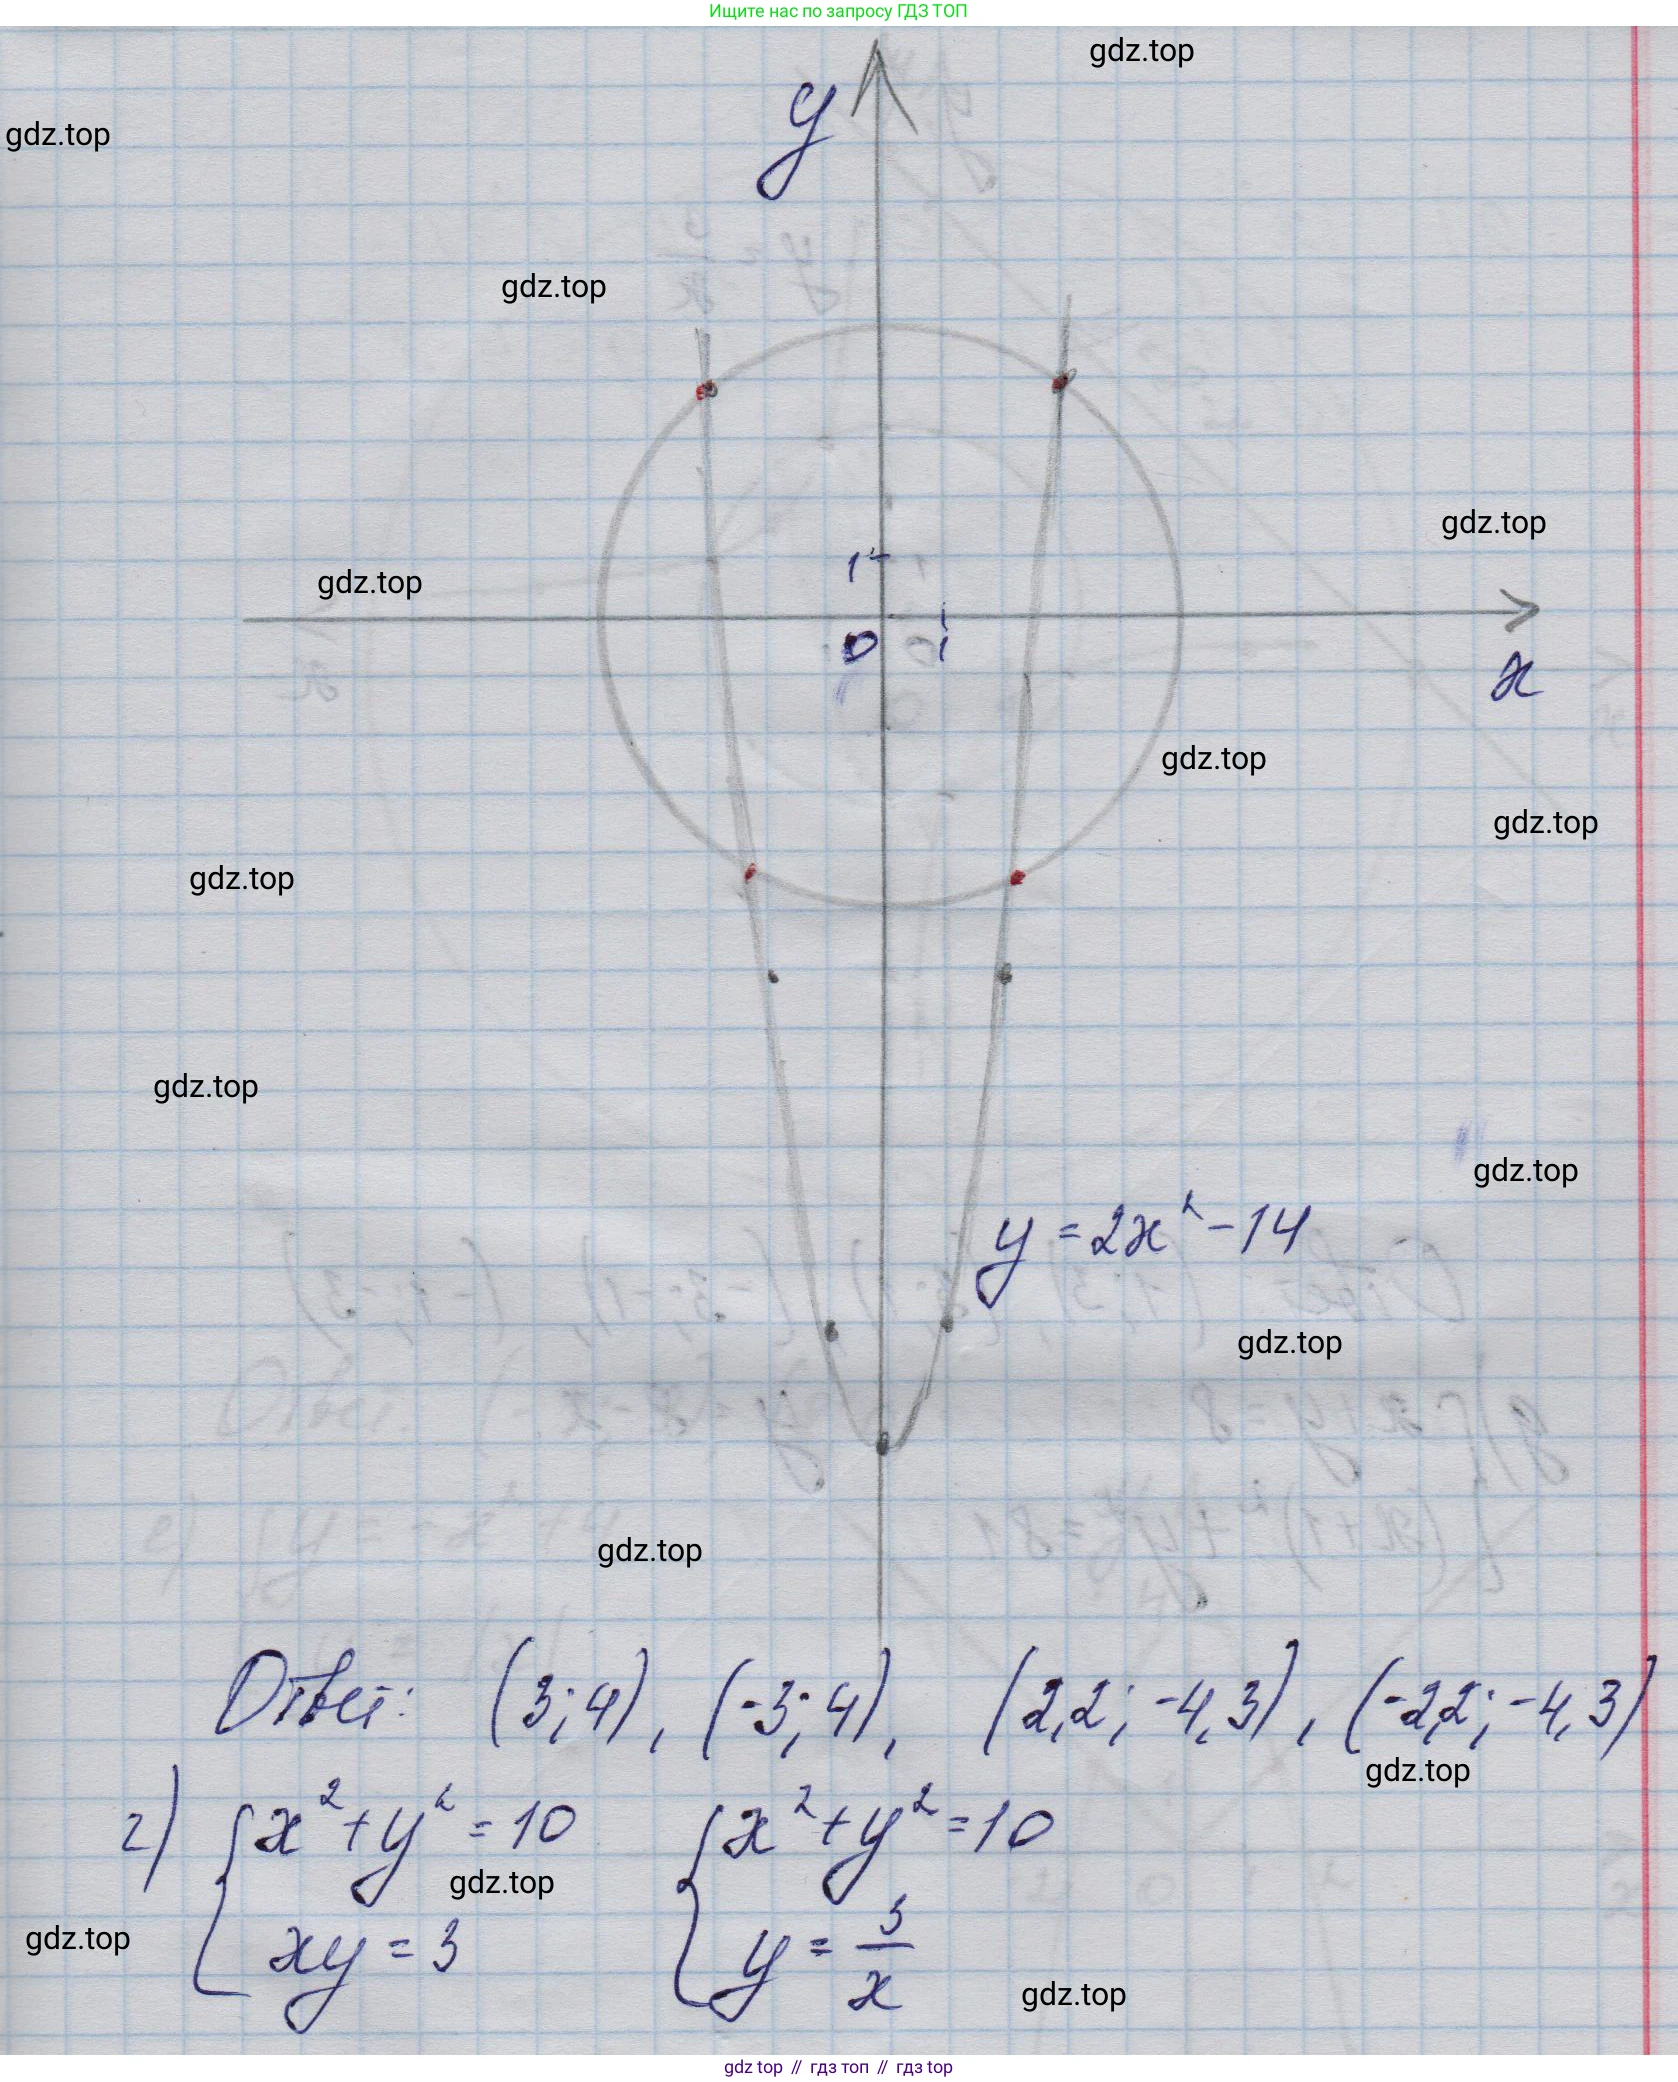 Ищите нас по запросу ГДЗ ТОП
gdz.top
y
gdz.top
gdz.top
gdz.top
1
gdz.top
0 1
x
gdz.top
gdz.top
gdz.top
gdz.top
gdz.top
y = 2x² - 14
gdz.top
gdz.top
Ответ: (3; 4), (-3; 4), (2,2; -4,3), (-2,2; -4,3)
gdz.top
г) { x² + y² = 10 { x² + y² = 10
gdz.top
xy = 3 y = 3/x
gdz.top
gdz.top
gdz top // гдз топ // гдз top